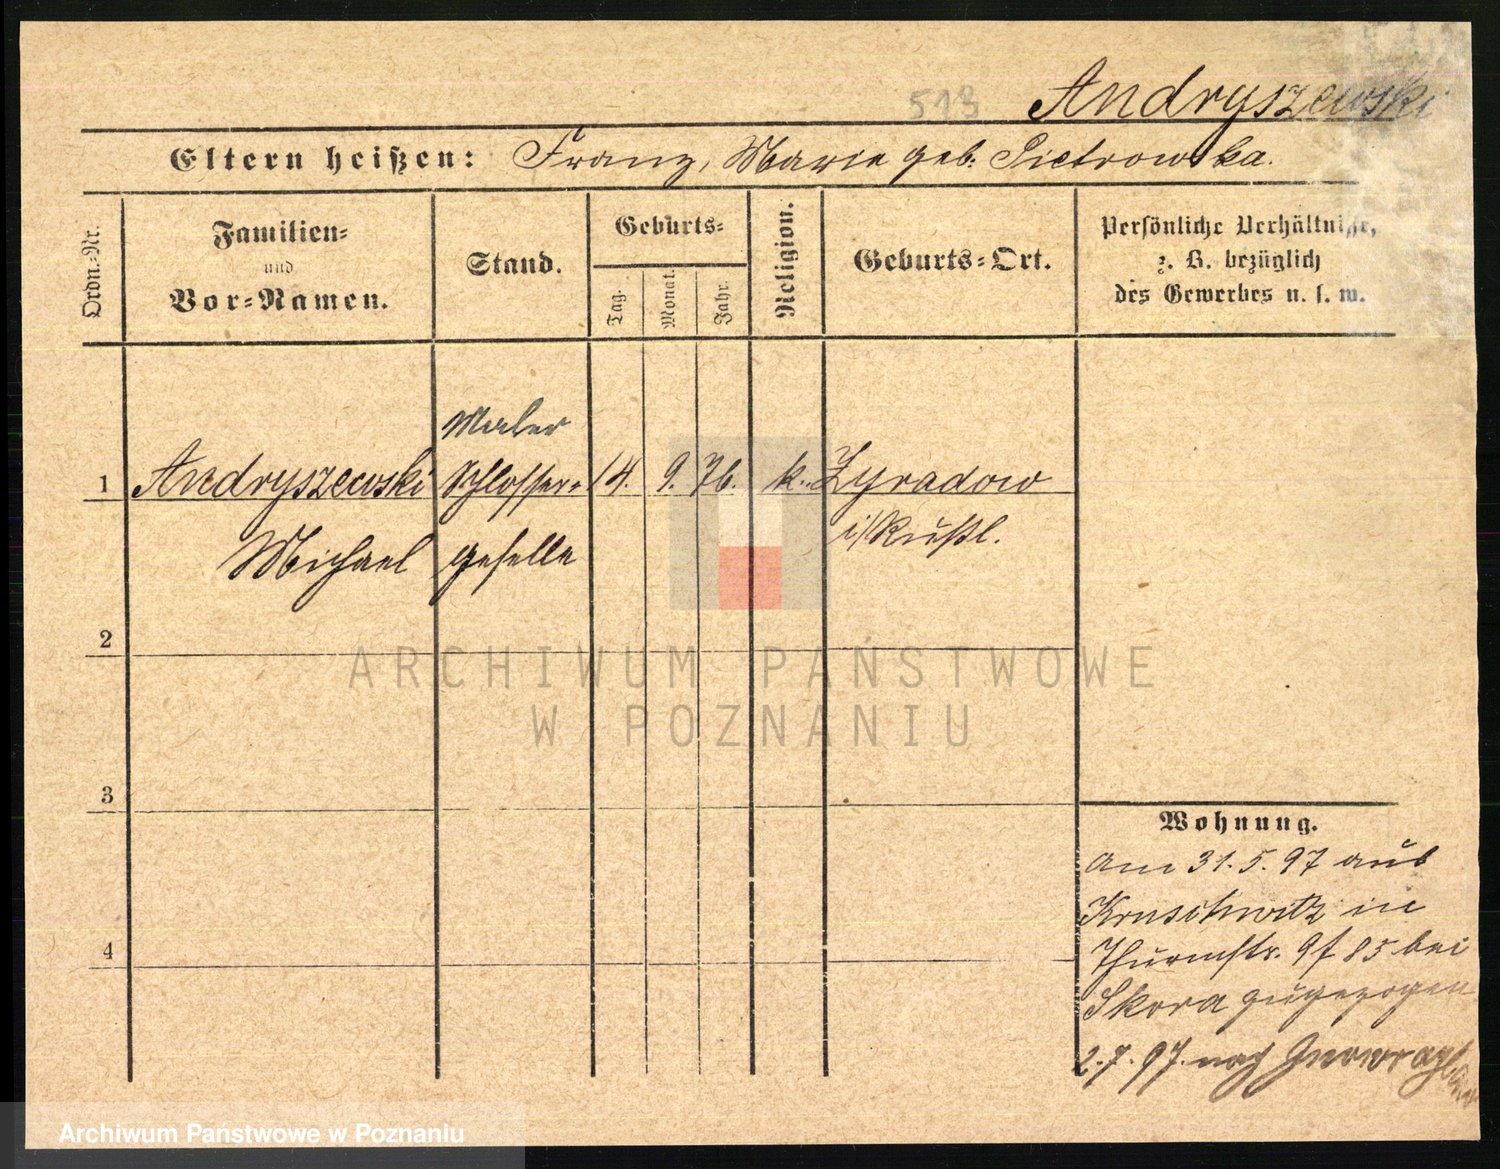 513 Andryszewski
Eltern heißen: Franz, Marie geb. Pietrowska.
Ordn.-Nr.
Familien-
und
Vor-Namen.
Stand.
Geburts-
Tag.
Monat.
Jahr.
Religion.
Geburts-Ort.
Persönliche Verhältnisse,
z. B. bezüglich
des Gewerbes u. s. w.
Maler
1 Andryszewski Schlosser- 14. 9. 76. k. Zyradow
i/Rußl.
Michael geselle
2
ARCHIWUM PAŃSTWOWE
W POZNANIU
3
Wohnung.
am 31. 5. 97 aus
Kruschwitz in
Thurmstr. 85 bei
Skora zugezogen
4
2. 7. 97. nach Inowrazlaw
Archiwum Państwowe w Poznaniu